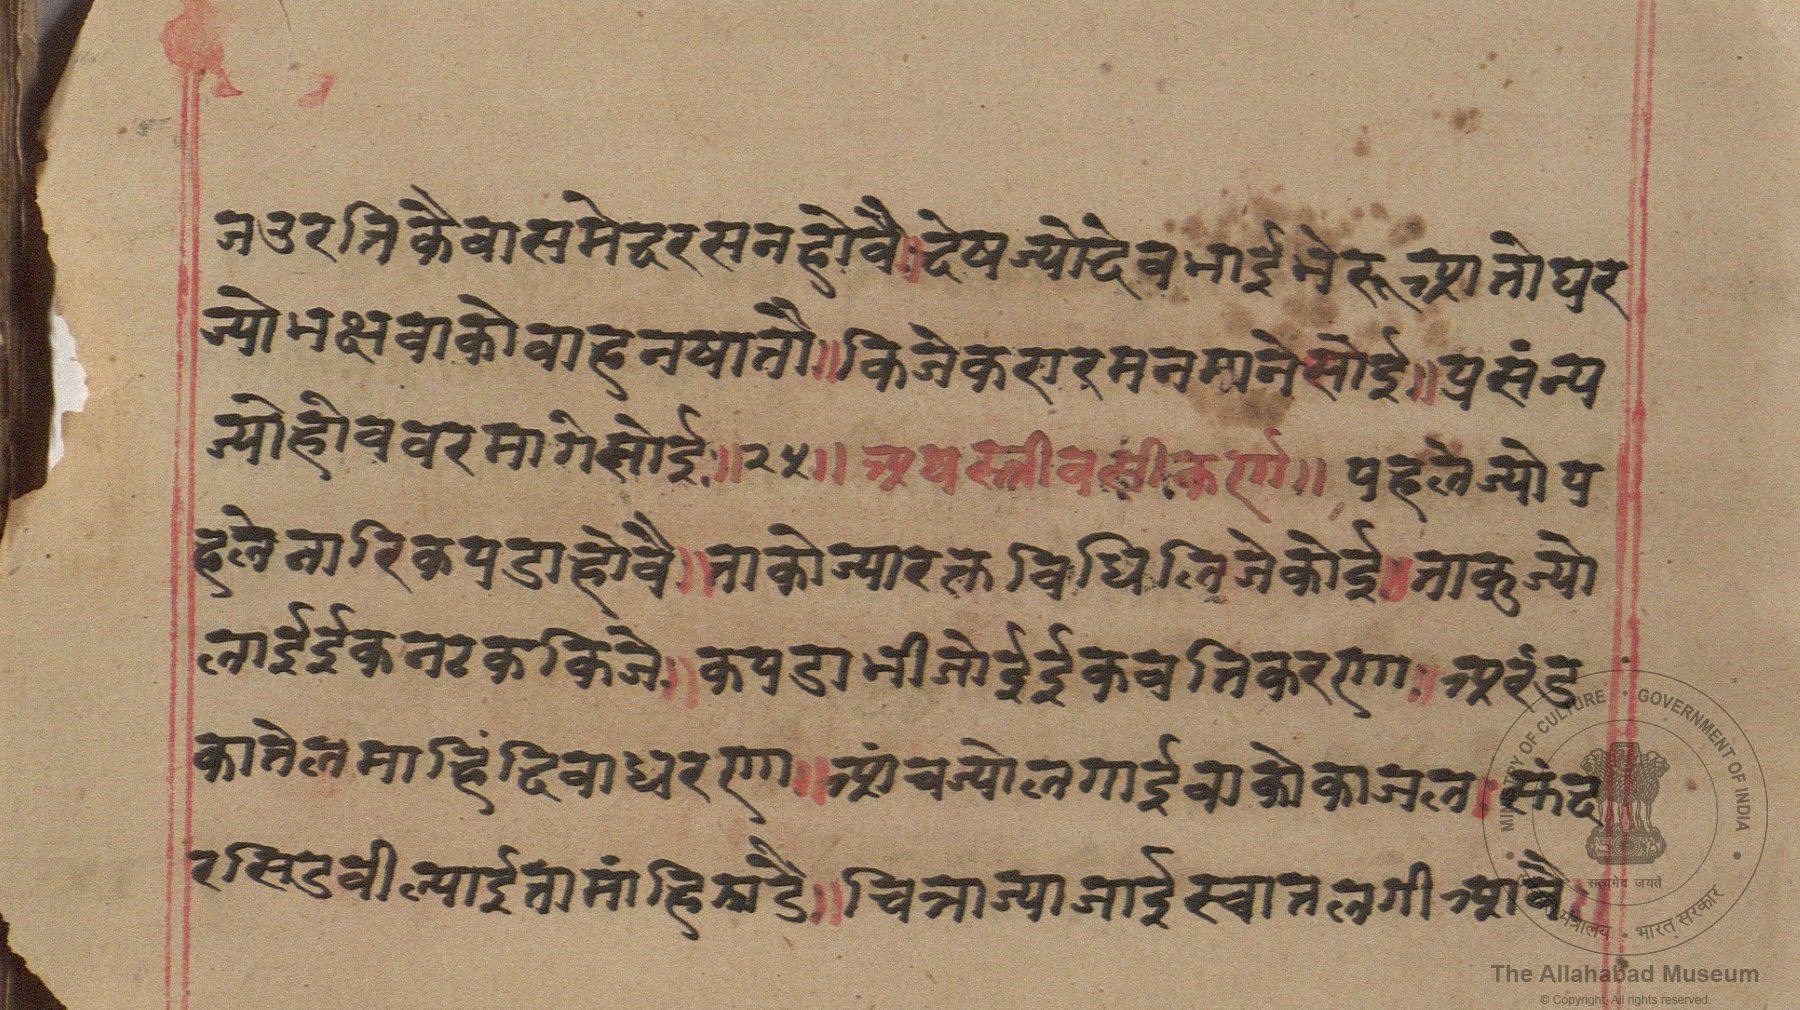 जउरतिकेवासमेदरसनहोवै॥देषज्योदेवभाईभेरूआतोघर
ज्योभक्षवाकोवाहनषातौ॥किजेकसरमनमानेसोई॥प्रसंन्य
ज्योहोववरमागेसोई॥२५॥अथस्त्रीवसीकर्ण॥पहलेज्योप
हलेनारिकपडाहोवै॥ताकोज्यारक्तविधिलिजेकोई॥ताकुज्यो
लाईईकनटककिजे॥कपडाभीतोईईकवतिकरणा॥अरंड
कातेलमाहिंदिवाधरणा॥आंचज्योलगाईवाकोकाजल॥
रसिडवील्याईतामांहि॥चित्राज्याजाईस्वातलगीआवै॥
MINISTRY OF CULTURE • GOVERNMENT OF INDIA
सत्यमेव जयते
मंत्रालय • भारत सरकार
The Allahabad Museum
© Copyright, All rights reserved.